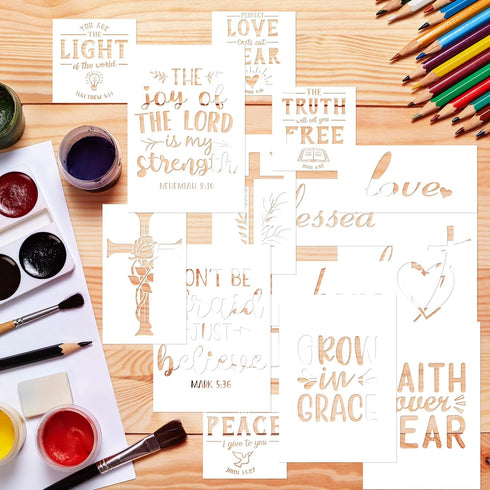 YOU ARE
THE
LIGHT
of the world
MATTHEW 5:14
PERFECT
LOVE
Casts out
FEAR
THE
joy of
THE LORD
is my
strength
NEHEMIAH 8:10
THE
TRUTH
will set you
FREE
love
blessed
DON'T BE
afraid
JUST
believe
MARK 5:36
GROW
in
GRACE
FAITH
over
FEAR
PEACE
I give to you
JOHN 14:27